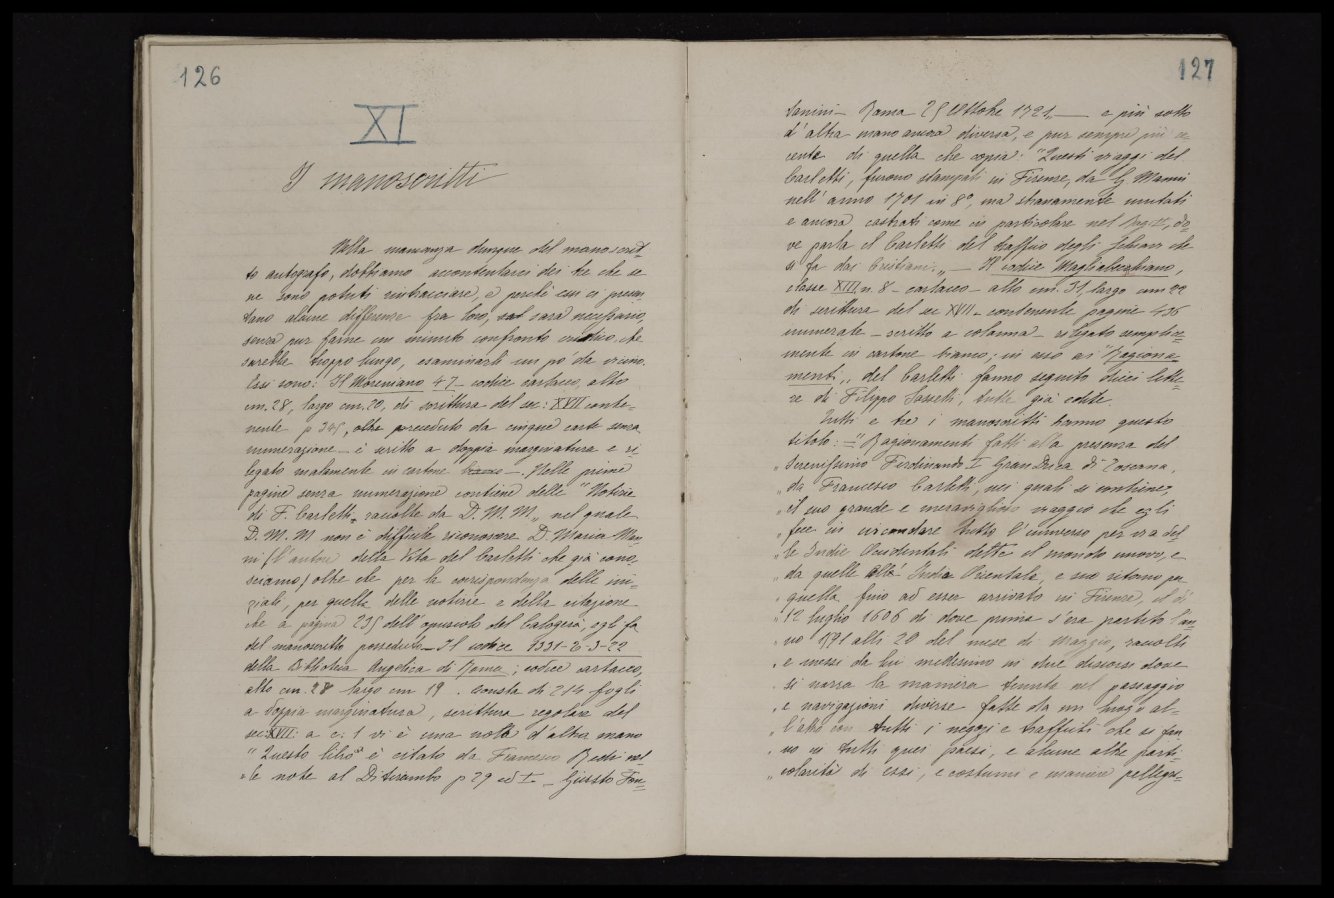 126
XI
I manoscritti
Nella mancanza dunque del manoscrit=
to autografo, dobbiamo accontentarci dei tre che se
ne sono potuti rintracciare, e poichè essi ci presen
tano alcune differenze fra loro, sarà necessario,
senza pur farne un minuto confronto critico che
sarebbe troppo lungo, esaminarli un po' da vicino.
Essi sono: Il Moreniano 47 - codice cartaceo, alto
cm. 28, largo cm. 20, di scrittura del sec: XVII conte-
nente p 345, oltre precedute da cinque carte senza
numerazione - è scritto a doppia marginatura e ri
legato malamente in cartone bianco -. Nelle prime
pagine senza numerazione contiene delle "Notizie
di F. Carletti raccolte da D. M. M." nel quale
D. M. M non è difficile riconoscere D. Maria Man
ni (l'autore della Vita del Carletti che già cono-
sciamo) oltre che per la corrispondenza delle ini-
ziali, per quella delle notizie e della citazione
che a pagina 235 dell'opuscolo del Calogerà, egli fa
del manoscritto posseduto - Il codice 1331-T-3-22
della Biblioteca Angelica di Roma; codice cartaceo,
alto cm. 28 largo cm 19. consta di 214 fogli
a doppia marginatura, scrittura regolare del
sec: XVII: a c: 1 vi è una nota d'altra mano
"Questo libro è citato da Francesco Redi nel
"le note al Ditirambo p 29 ed I - Giusto Fon=
127
tanini - Roma 25 Ottobre 1721 - e più sotto
d'altra mano ancora diversa, e pur sempre più re
cente di quella che copia: "Questi viaggi del
Carletti, furono stampati in Firenze, da G. Manni
nell'anno 1701 in 8°, ma stranamente mutati
e ancora castrati come in particolare nel Rag. II, do=
ve parla il Carletti del traffico degli schiavi che
si fa dai Cristiani." - Il codice Magliabechiano,
classe XIII, n. 8 - cartaceo - alto cm. 31, largo cm. 22
di scrittura del sec XVII - contenente pagine 436
numerate - scritto a colonna - rilegato semplice=
mente in cartone bianco; in esso ai "Ragiona=
menti" del Carletti fanno seguito dieci lette=
re di Filippo Sassetti, tutte già edite.
Tutti e tre i manoscritti hanno questo
titolo: - "Ragionamenti fatti alla presenza del
" Serenissimo Ferdinando I Gran Duca di Toscana,
" da Francesco Carletti, nei quali si contiene,
" il suo grande e meraviglioso viaggio che egli
" fece in circondare tutto l'universo per via del
" le Indie Occidentali dette il mondo nuovo, e
" da quelle alle Indie Orientali, e suo ritorno per
" quella fino ad esser arrivato in Firenze, il dì
" 12 luglio 1606 di dove prima s'era partito l'an=
" no 1591 alli 20 del mese di Maggio, raccolti
" e messi da lui medesimo in due discorsi dove
" si narra la maniera tenuta nel passaggio
" e navigazioni diverse fatte da un luogo al=
" l'altro con tutti i negozi e traffichi che si fan
" no in tutti quei paesi, e alcune altre parti=
" colarità di essi, e costumi e maniere pellegri=